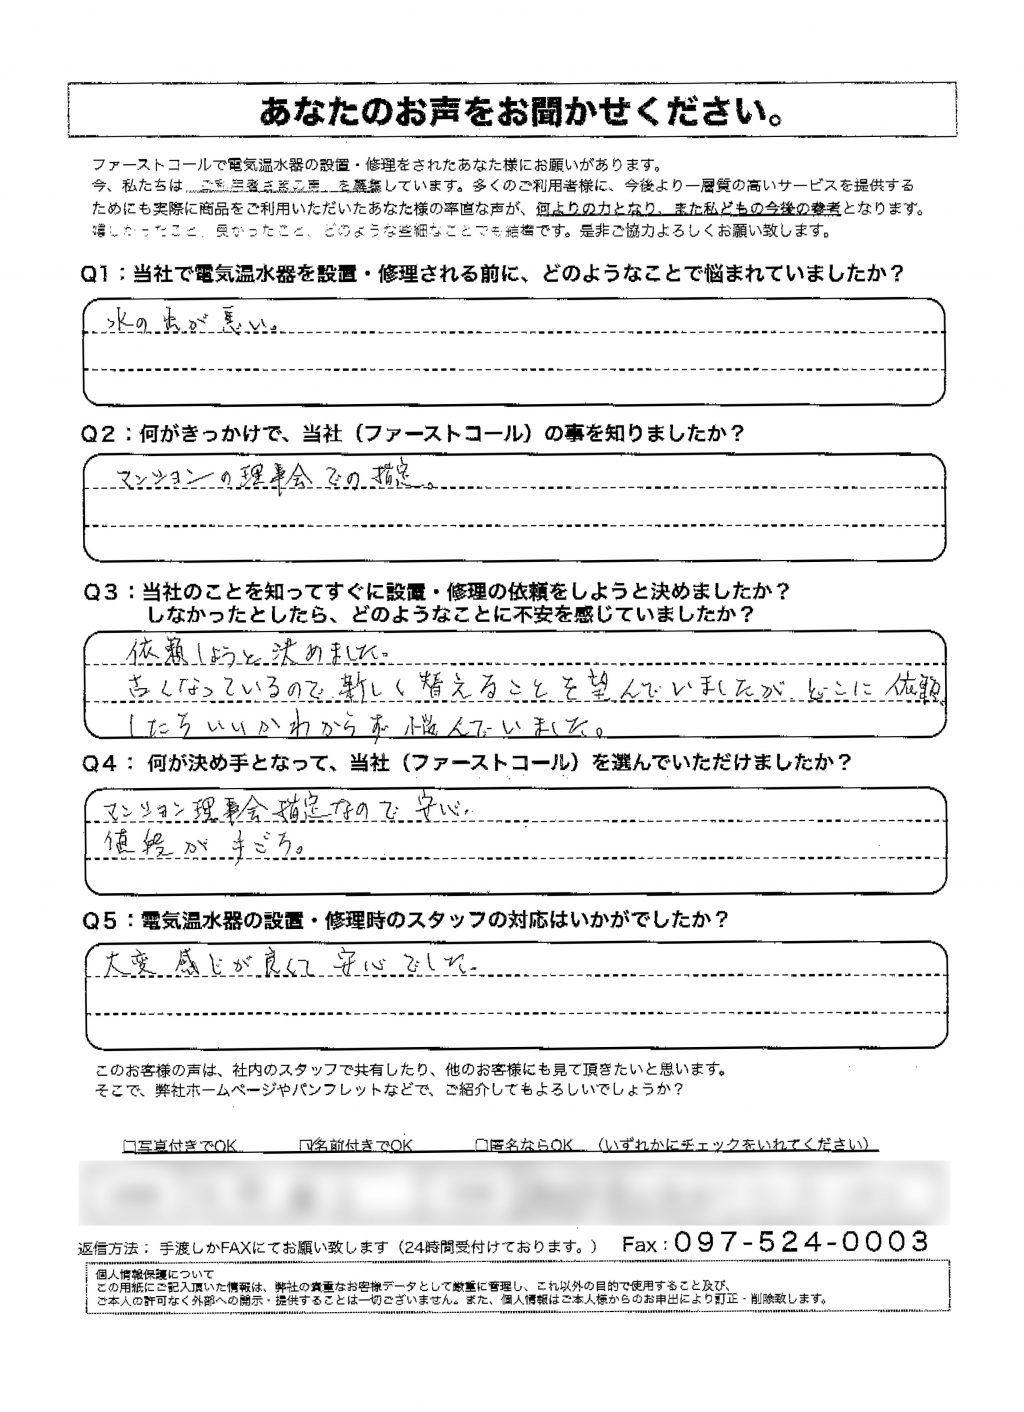 あなたのお声をお聞かせください。
ファーストコールで電気温水器の設置・修理をされたあなた様にお願いがあります。
今、私たちは、ご利用者さまの声、を募集しています。多くのご利用者様に、今後より一層質の高いサービスを提供する
ためにも実際に商品をご利用いただいたあなた様の率直な声が、何よりの力となり、また私どもの今後の参考となります。
嬉しかったこと、良かったこと、どのような些細なことでも結構です。是非ご協力よろしくお願い致します。
Q1：当社で電気温水器を設置・修理される前に、どのようなことで悩まれていましたか？
水の出が悪い。
Q2：何がきっかけで、当社（ファーストコール）の事を知りましたか？
マンションの理事会での指定。
Q3：当社のことを知ってすぐに設置・修理の依頼をしようと決めましたか？
しなかったとしたら、どのようなことに不安を感じていましたか？
依頼しようと決めました。
古くなっているので新しく替えることを望んでいましたが、どこに依頼
したらいいかわからず悩んでいました。
Q4： 何が決め手となって、当社（ファーストコール）を選んでいただけましたか？
マンション理事会指定なので安心。
値段が手ごろ。
Q5：電気温水器の設置・修理時のスタッフの対応はいかがでしたか？
大変感じが良くて安心でした。
このお客様の声は、社内のスタッフで共有したり、他のお客様にも見て頂きたいと思います。
そこで、弊社ホームページやパンフレットなどで、ご紹介してもよろしいでしょうか？
□写真付きでOK ☑名前付きでOK □匿名ならOK （いずれかにチェックをいれてください）
返信方法： 手渡しかFAXにてお願い致します（24時間受付けております。） Fax：097-524-0003
個人情報保護について
この用紙にご記入頂いた情報は、弊社の貴重なお客様データとして厳重に管理し、これ以外の目的で使用すること及び、
ご本人の許可なく外部への開示・提供することは一切ございません。また、個人情報はご本人様からのお申出により訂正・削除致します。